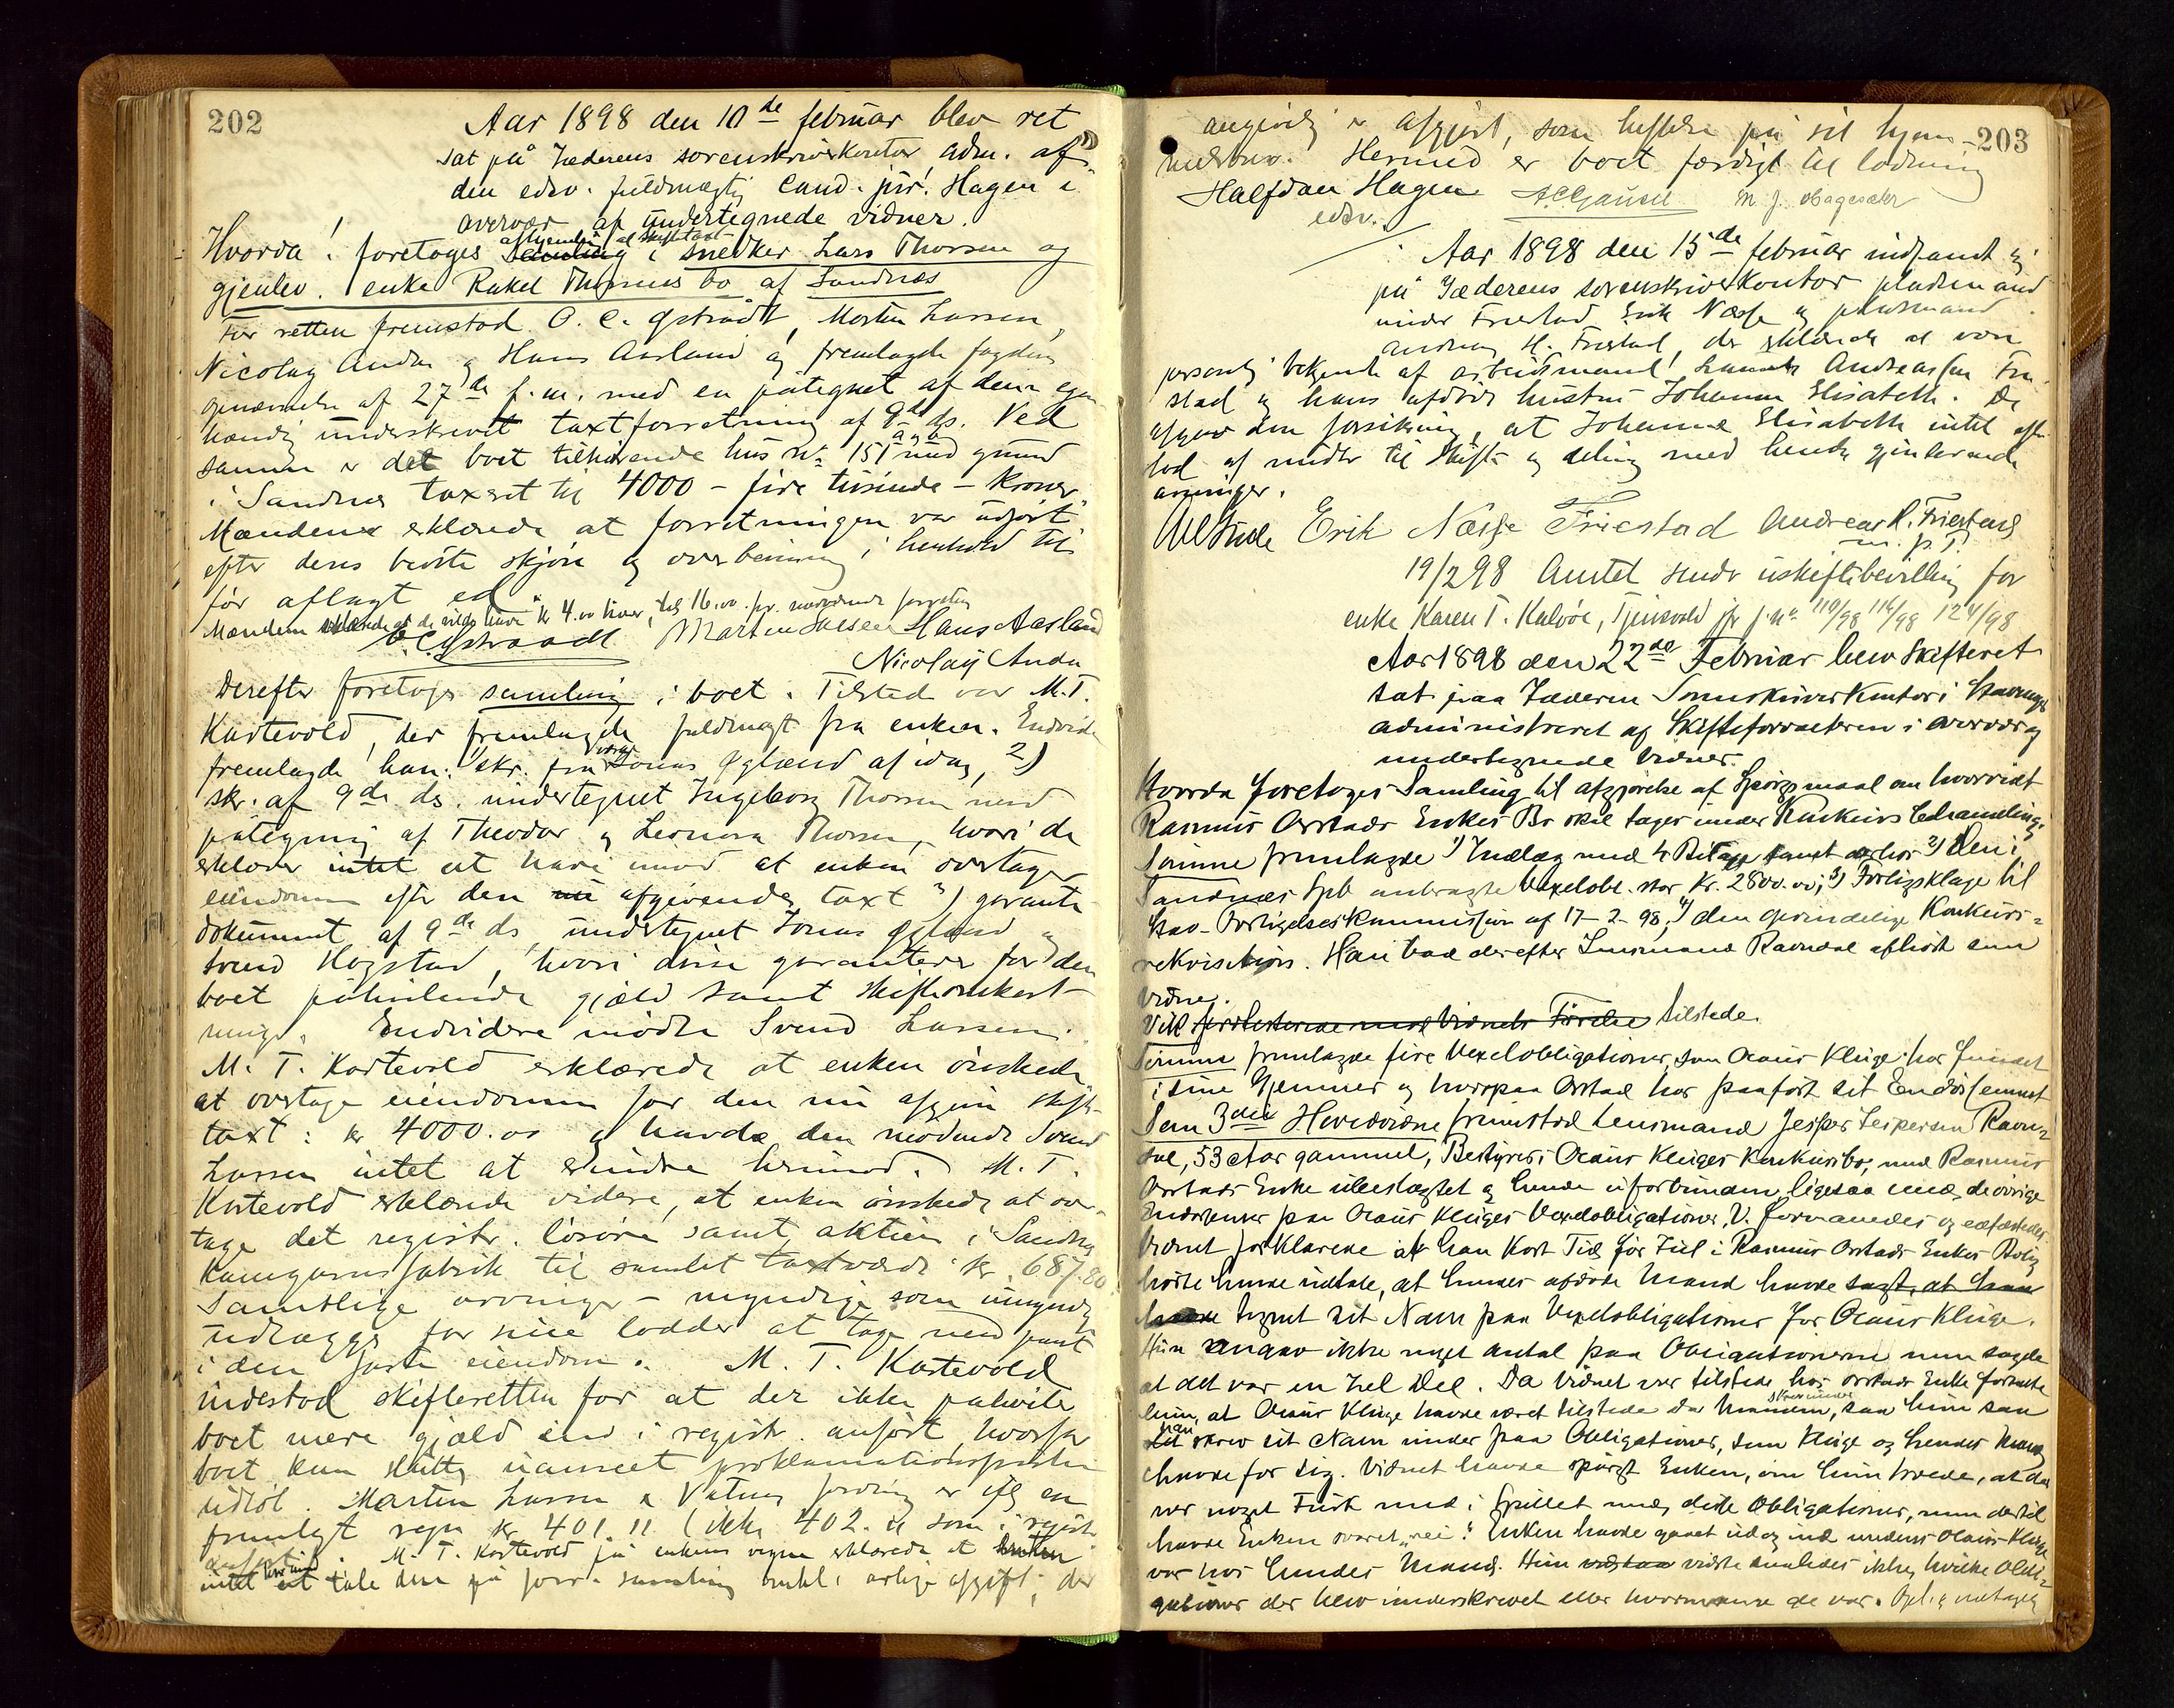 202
Aar 1898 den 10de februar blev ret
sat på Jæderens sorenskriverkontor adm. af
den edsv. fuldmægtig cand. jur. Hagen i
overvær af undertegnede vidner.
Hvorda! foretoges afhjemling af skiftetaxt i snedker Lars Thorsen og
gjenlev. enke Rakel Thorsens bo af Sandnæs
For retten fremstod O. C. Gstraadt, Morten Larsen,
Nicolay Anda og Hans Aasland og fremlagde fogdens
opnævnelse af 27de f.m. med en påtegnet af dem egen
hændig underskrevet taxtforretning af 9de ds. Ved
samme er det boet tilhørende hus No 151 a og b med grund
i Sandnæs taxeret til 4000 - fire tusinde - kroner.
Mændene erklærede at forretningen var udført
efter deres bedste skjøn og overbevisning i henhold til
før aflagt ed
Mændene erklærede at de vilde have kr 4.00 hver, tils 16.00 for nærværende forretn
O. C. Gstraadt Morten Larsen Hans Aasland
Nicolaij Anda
Derefter foretoges samling i boet. Tilsted var M. T.
Kartevold, der fremlagde fuldmagt fra enken. Endvidere
fremlagde han: 1) skr. fra værge Jonas Øglænd af idag, 2)
skr. af 9de ds. undertegnet Ingeborg Thorsen med
påtegning af Theodor og Leonora Thorsen, hvori de
erklærer intet at have imod at enken overtager
eiendommen efter den nu afgivende taxt 3) garanti
dokument af 9de ds undertegnet Jonas Øglænd og
Svend Høgstad, hvori disse garanterer for den
boet påhvilende gjæld samt skifteomkost-
ninger. Endvidere mødte Svend Larsen.
M. T. Kartevold erklærede at enken ønskede
at overtage eiendommen for den nu afgivne skifte-
taxt: kr 4000.00 og havde den mødende Svend
Larsen intet at erindre herimod. M. T.
Kartevold erklærede videre, at enken ønskede at over-
tage det registr. løsøre samt aktien i Sandnæs
Kamgarnsfabrik til samlet taxtværdi kr. 687.80
Samtlige arvinger - myndige som umyndige
udlægges for sine lodder at tage med pant
i den faste eiendom. M. T. Kartevold
indestod skifteretten for at der ikke påhviler
boet mere gjæld end i registr. anført, hvorfor
boet kun sluttes uanseet proklamationsfristens
udløb. Morten Larsen Vatnes fordring er iflg en
fremlagt regn kr 401.11 (ikke 402.11 som i registr.
anført). M. T. Kartevold på enkens vegne erklærede at
intet at tale den på forr. samling omhl. årlige afgift, der
203
angivelig er afgjort, som heftelse på sit hjem-
melsbrev. Hermed er boet færdigt til lodning
Halfdan Hagen A. C. Gausel M. J. Hagesæter
edsv.
Aar 1898 den 15de februar indfandt sig
på Jæderens sorenskriverkontor pladsmand
under Friestad Erik Næsse og pladsmand
Andreas H. Friestad, der erklærede at være
personlig bekjendte af arbeidsmand Andreassen Frie-
stad og hans afdøde hustru Johanne Elisabeth. De
afgav den forsikring, at Johanne Elisabeth intet efter
lod af midler til skifte og deling med hendes gjenlevende
arvinger.
Erik Næsse Friestad Andreas H. Friestad
m. p. P.
19/2 98 Amtet sender uskiftebevilling for
enke Karen T. Kalvøe, Tjensvold jfr j.no 110/98 116/98 124/98
Aar 1898 den 22de Februar blev Skifteret
sat paa Jæderen Sorenskriverkontor i Stavanger
administreret af Skifteforvalteren i overvær af
undertegnede Vidner.
Hvorda foretoges Samling til afgjørelse af Spørgsmaal om hvorvidt
Rasmus Orstads Enkes Bo skal tages under Konkurs behandling.
Sømme fremlagde 1) Indlæg med 4 Bilage samt 2) Den i
Sandnes Spb anbragte Vexelobl. stor Kr. 2800.00; 3) Forligsklage til
Stav. Forligelseskommission af 17-2-98, 4) den oprindelige Konkurs-
rekvisition. Han bad derefter Lensmand Ravndal afhørt som
Vidne.
Vill protesterede mod Vidnets Førelse tilstede.
Sømme fremlagde fire Vexelobligationer, som Ocaus Kluge har fundet
i sine Gjemmer og hvorpaa Orstad har paaført sit Endossement
Som 3die Hovedvidne fremstod Lensmand Jesper Jespersen Ravn-
dal, 53 Aar gammel, Bestyrer i Ocaus Kluges Konkursbo, med Rasmus
Orstads Enke ubeslægtet og hende uforbunden, ligesaa med de øvrige
Endossenter paa Ocaus Kluges Vexelobligationer. V. formanedes og edfæstedes.
Vidnet forklarede at han kort Tid før Jul i Rasmus Orstads Enkes Bolig
hørte hende udtale, at hendes afdøde Mand havde sagt, at han
havde tegnet sit Navn paa Vexelobligationer for Ocaus Kluge.
Hun angav ikke noget Antal paa Obligationerne men sagde
at det var en hel Del. Da Vidnet var tilstede hos Orstads Enke fortalte
hun, at Ocaus Kluge havde været tilstede da Manden skrev under, saa hun saa
han skrev sit Navn under paa Obligationer, som Kluge og hendes Mand
havde for sig. Vidnet havde spurgt Enken, om hun troede, at der
var noget Fusk med i Spillet med disse Obligationer, men dertil
havde Enken svaret "nei". Enken havde gaaet ud og ind medens Ocaus Kluge
var hos hendes Mand. Hun vidste saaledes ikke, hvilke Obli-
gationer der blev underskrevet eller hvormange de var. Opl. og vedtaget